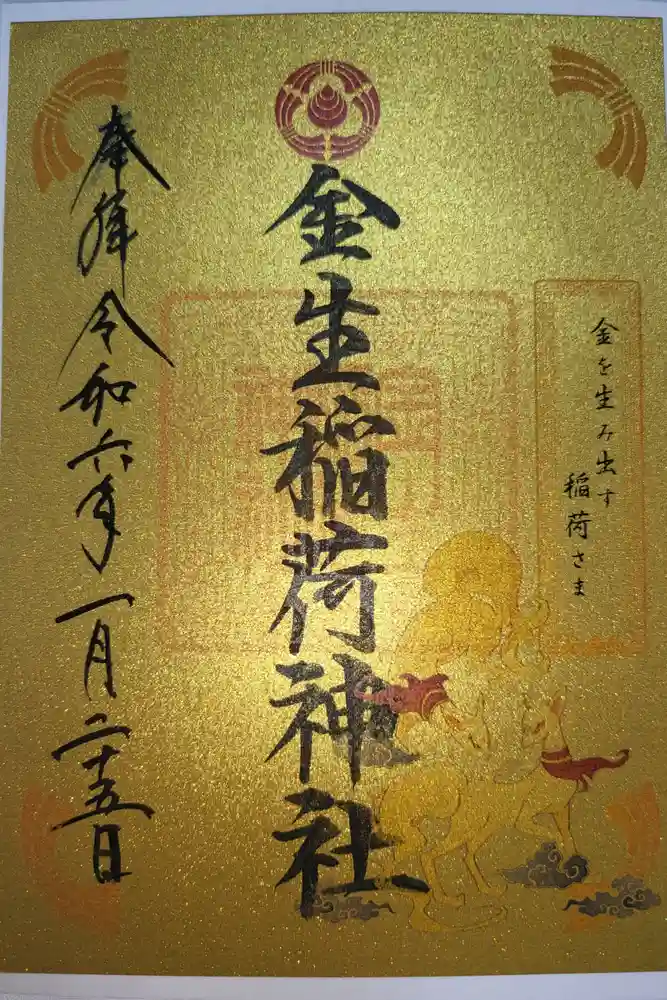 金を生み出す
稲荷さま
金生稲荷神社
奉拝 令和六年 一月二十五日